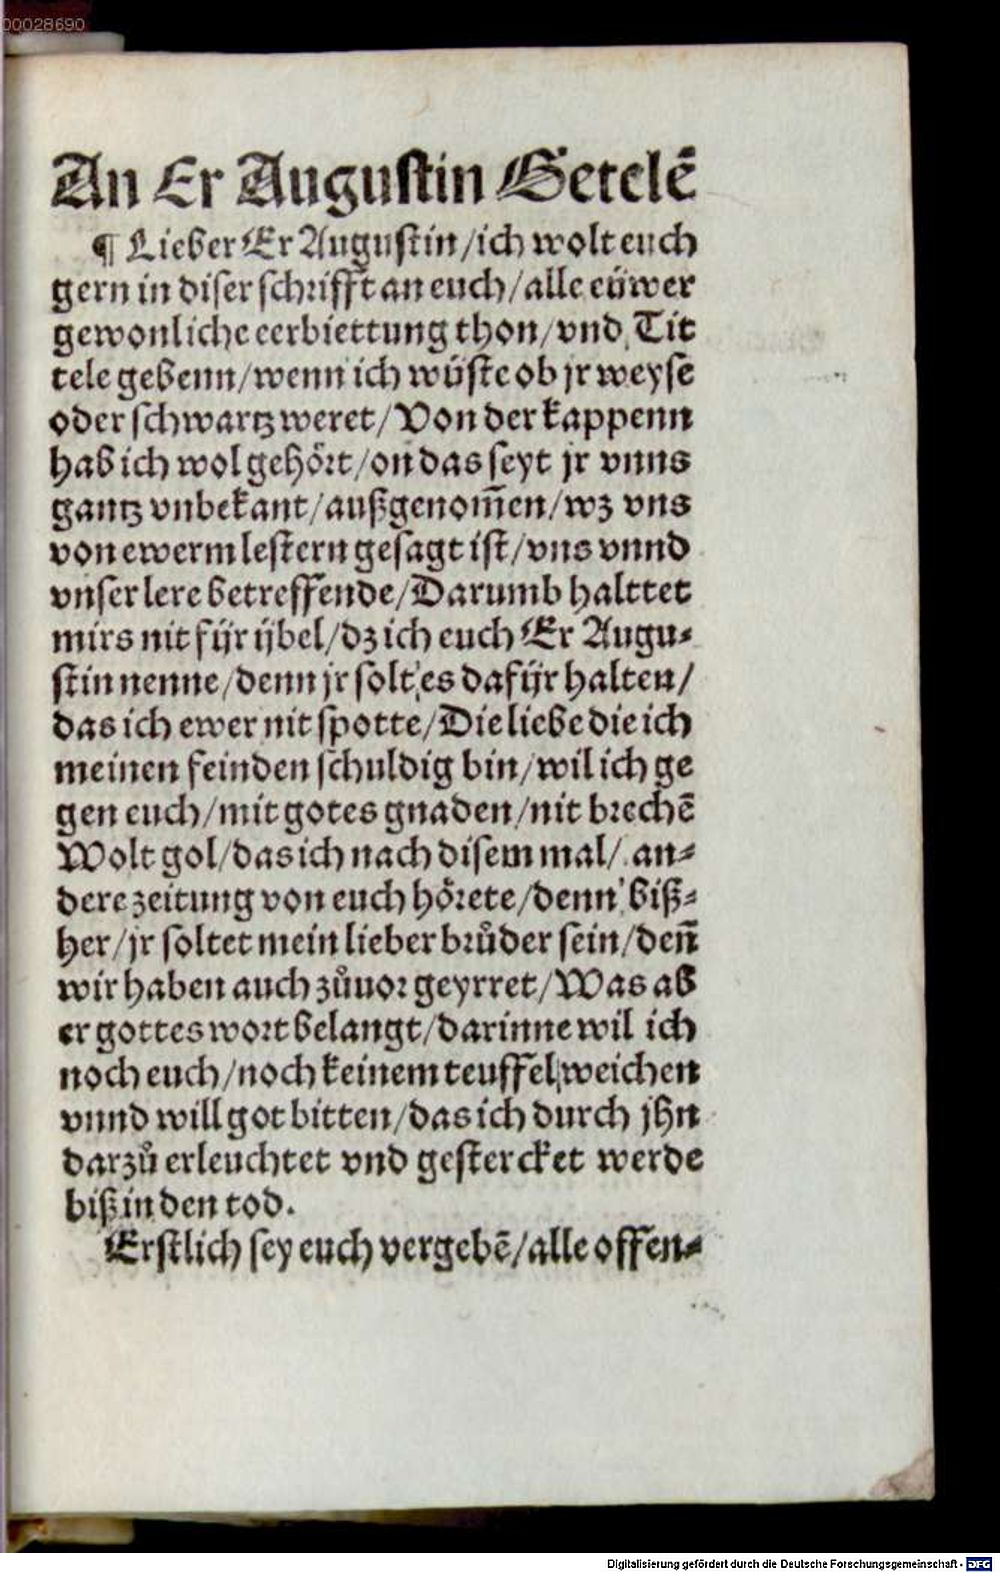 00028690
An Er Augustin Getelē
¶ Lieber Er Augustin/ich wolt euch
gern in diser schrifft an euch/alle eüwer
gewonliche eerbiettung thon/vnd Tit
tele gebenn/wenn ich wüste ob jr weyse
oder schwartz weret/Von der kappenn
hab ich wol gehört/on das seyt jr vnns
gantz vnbekant/außgenom̄en/wz vns
von ewerm lestern gesagt ist/vns vnnd
vnser lere betreffende/Darumb halttet
mirs nit fÿr ÿbel/dz ich euch Er Augu⸗
stin nenne/denn jr solt es dafÿr halten/
das ich ewer nit spotte/Die liebe die ich
meinen feinden schuldig bin/wil ich ge
gen euch/mit gotes gnaden/nit brechē
Wolt gol/das ich nach disem mal/ an⸗
dere zeitung von euch hörete/denn biß⸗
her/jr soltet mein lieber brůder sein/den̄
wir haben auch zůuor geyrret/Was ab
er gottes wort belangt/darinne wil ich
noch euch/noch keinem teuffel weichen
vnnd will got bitten/das ich durch jhn
darzů erleuchtet vnd gestercket werde
biß in den tod.
Erstlich sey euch vergebē/alle offen⸗
Digitalisierung gefördert durch die Deutsche Forschungsgemeinschaft - DFG